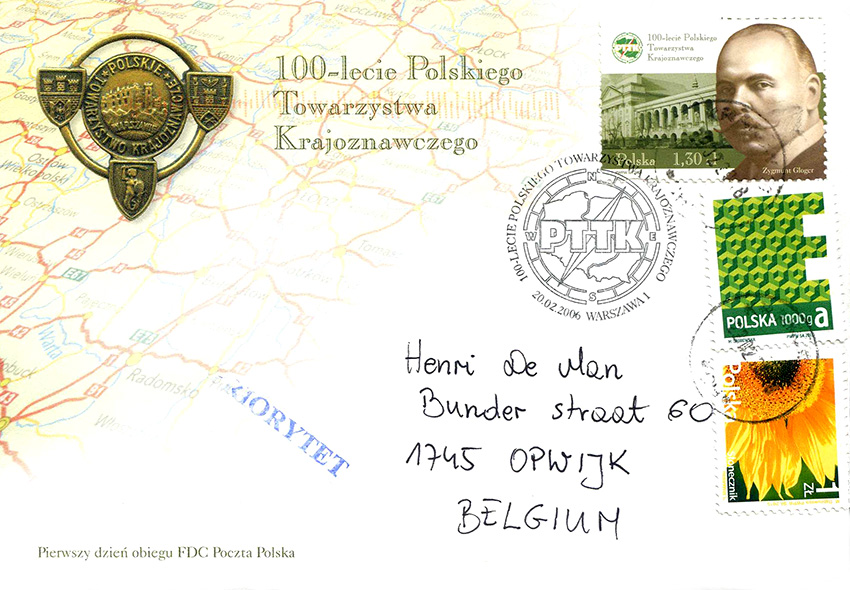 100-lecie Polskiego
Towarzystwa
Krajoznawczego
POLSKIE
TOWARZYSTWO KRAJOZNAWCZE
100-lecie Polskiego
Towarzystwa
Krajoznawczego
PTTK
Polska 1,30 zł
Zygmunt Gloger
100-LECIE POLSKIEGO TOWARZYSTWA KRAJOZNAWCZEGO
N
W PTTK E
S
20.02.2006 WARSZAWA 1
E
POLSKA 1000g a
Polska
słonecznik
1 ZŁ
Henri De Man
Bunder straat 60
1745 OPWIJK
BELGIUM
PRIORYTET
Radomsko
Pierwszy dzień obiegu FDC Poczta Polska